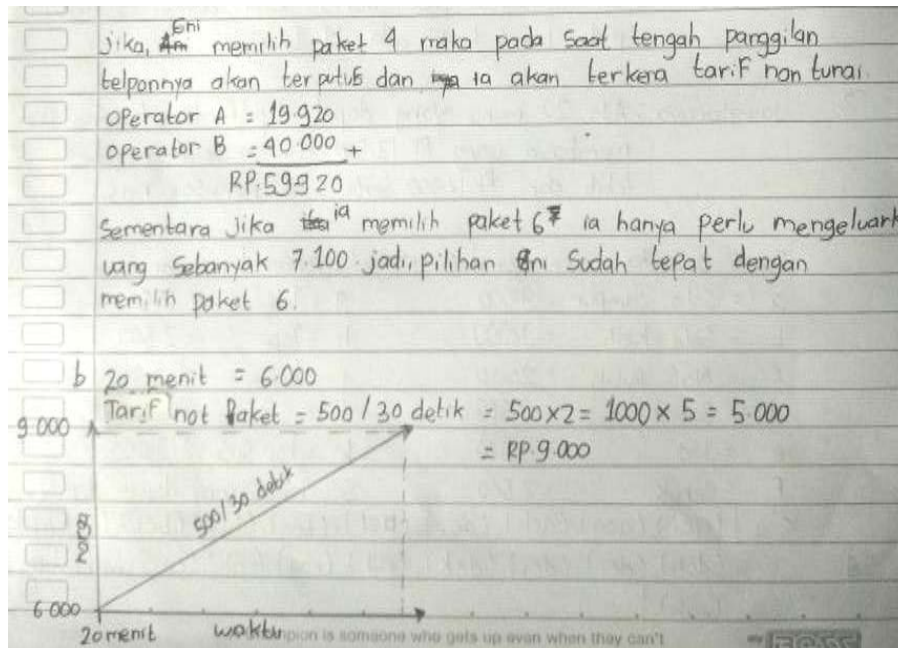 jika, Eni memilih paket 4 maka pada saat tengah panggilan
telponnya akan terputus dan ia akan terkena tarif non tunai.
operator A = 19.920
operator B = 40.000 +
RP.59920
Sementara Jika ia memilih paket 6 ia hanya perlu mengeluark
uang Sebanyak 7.100 jadi, pilihan Eni Sudah tepat dengan
memilih paket 6.
b 20 menit = 6.000
Tarif not Paket = 500 / 30 detik = 500 x 2 = 1000 x 5 = 5.000
9.000
= RP.9.000
500/30 detik
6.000
20 menit waktu
pion is someone who gets up even when they can't